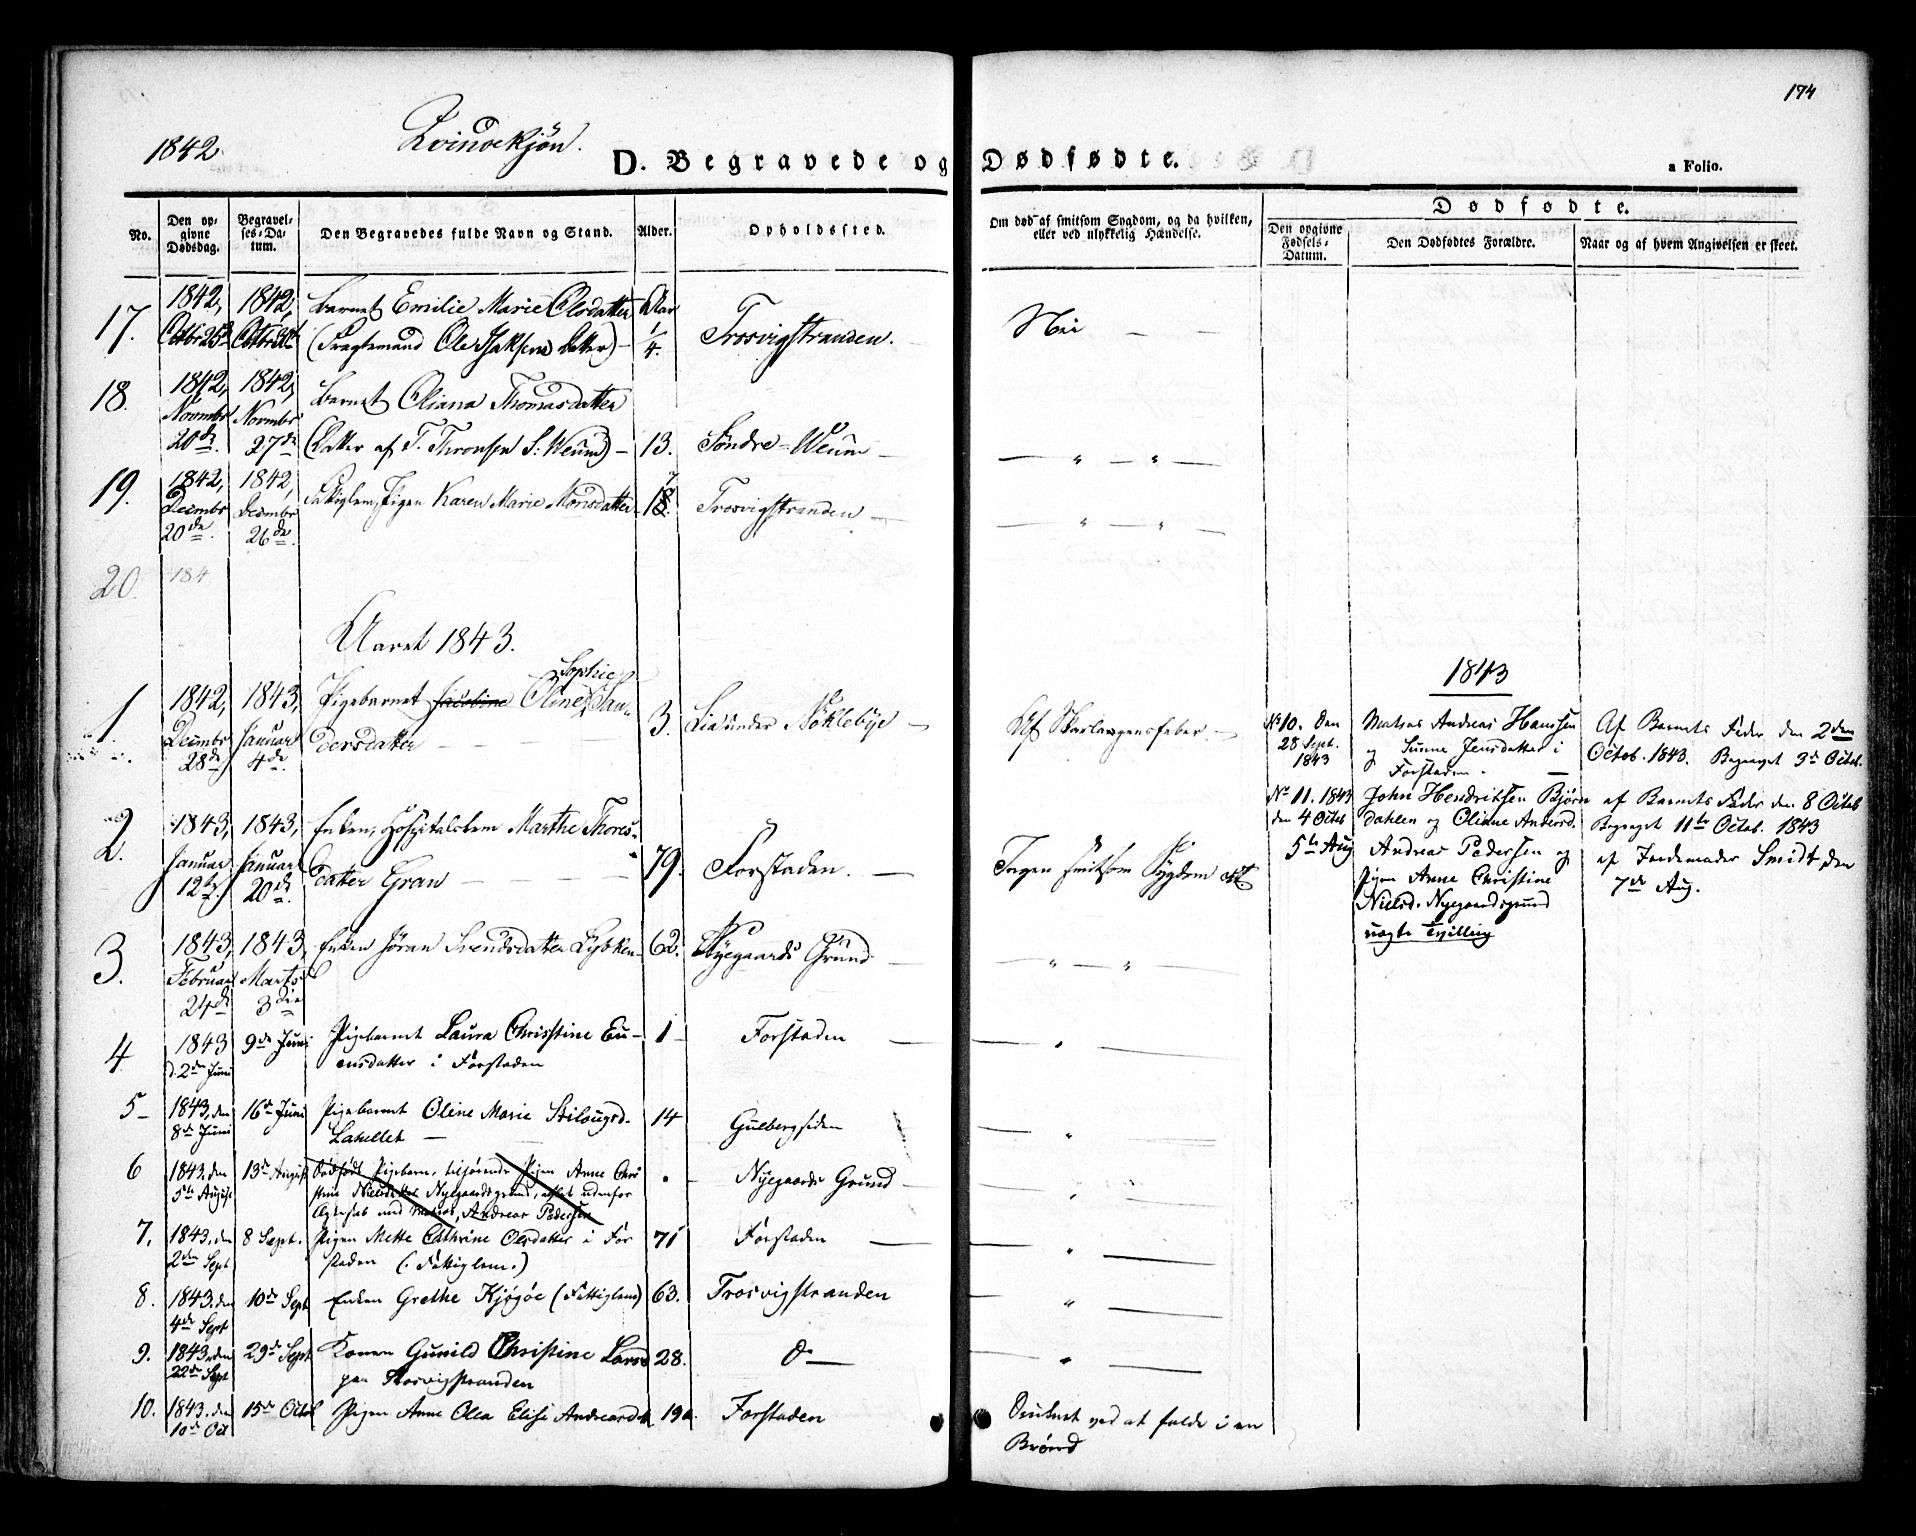 174
1842
Qvindekjön.
D. Begravede og Dødfødte.
a Folio.
No.
Den opgivne Dødsdag.
Begravelses-Datum.
Den Begravedes fulde Navn og Stand.
Alder.
Opholdssted.
Om død af smitsom Sygdom, og da hvilken, eller ved ulykkelig Hændelse.
Dødfødte.
Den opgivne Fødsels-Datum.
Den Dødfødtes Forældre.
Naar og af hvem Angivelsen er skeet.
17. 1842, Octbr 25de 1842, Octbr Barnet Emilie Marie Olsdatter Aar Trosvigstranden. Nei
(Fragtemand Ole Isaksens Datter) 1/4.
18. 1842, Novmbr 20de 1842, Novmbr 27de Barnet Oliana Thomasdatter
(Datter af T. Thronsen S. Weum) 13. Søndre-Weum — " — " —
19. 1842, Decmbr 20de 1842, Decmbr 26de Fattiglem, Pigen Karen Marie Monsdatter Trosvigstranden — " — " —
20. 184
Aaret 1843.
1. 1842, Decmbr 28de 1843, Januar 4de Pigebarnet Jacobine Oline Sophie Sandersdatter 3. Lia under Nöklebye Af Skarlagensfeber.
2. 1843, Januar 12te 1843, Januar 20de Enken, Hospitalslem Marthe Thoresdatter Gran 79. Forstaden. Ingen smitsom Sygdom
3. 1843, Februar 24de 1843, Marts 3die Enken Jøran Svendsdatter 62. Nyegaards Grund — " — " —
4 1843 d. 2den Juni 9de Juni Pigebarnet Laura Christine Evensdatter i Forstaden 1 Forstaden — " —
5 1843, den 8de Juni 16de Juni Pigebarnet Oline Marie Stilaugsd. 14 Gulbergsiden — " —
6 1843. den 5te August 13de August Dødfødt Pigebarn, tilhørende Pigen Anne Christine Nielsdatter Nyegaardsgrund, avlet udenfor Ægteskab med Andreas Pedersen Nyegaards Grund "
7. 1843, den 2den Sept 8 Sept. Pigen Mette Cathrine Olsdatter i Forstaden (Fattiglem.) 71 Forstaden — " —
8. 1843. den 4de Sept 10de Sept Enken Grethe Kjøgøe (Fattiglem) 63. Trosvigstranden — " —
9. 1843. den 22de Sept 29de Sept Konen Gunild Christine Larsd paa Trosvigstranden 28. Do — " —
10. 1843. den 10de Oct 15de Octob Pigen Anne Olea Elise Andreasd. 19 Forstaden Druknet ved at falde i en Brönd
1843
No 10. Den 28 Sept. 1843 Mathias Andreas Hanssen og Jensdatter i Forstaden. Af Barnets Fader den 2den Octob. 1843. Begravet 3de Octob.
No 11. 1843 den 4 Octob John Hendriksen Bjørndahlen og Oliane Andersd. af Barnets Fader den 8 Octob Begravet 11te Octob. 1843
5te Aug Andreas Pedersen og Pigen Anne Christine Nielsd. Nyegaardsgrund uægte Tvilling af Jordemoder Smidt den 7de Aug.